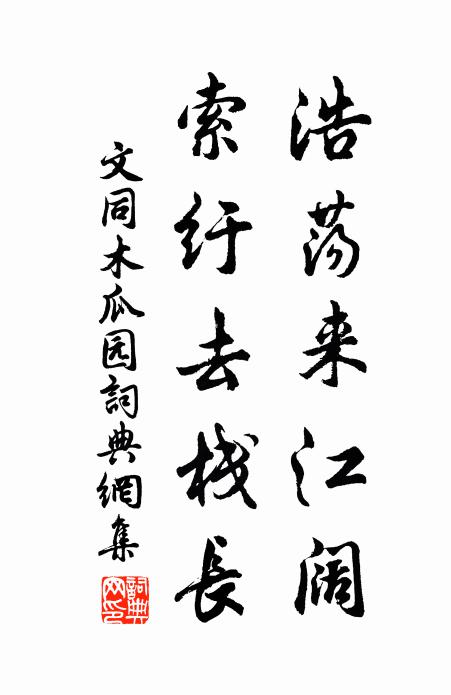 浩荡来江阔
索纡去栈長
文同木瓜园詞典網集
詞典
网印